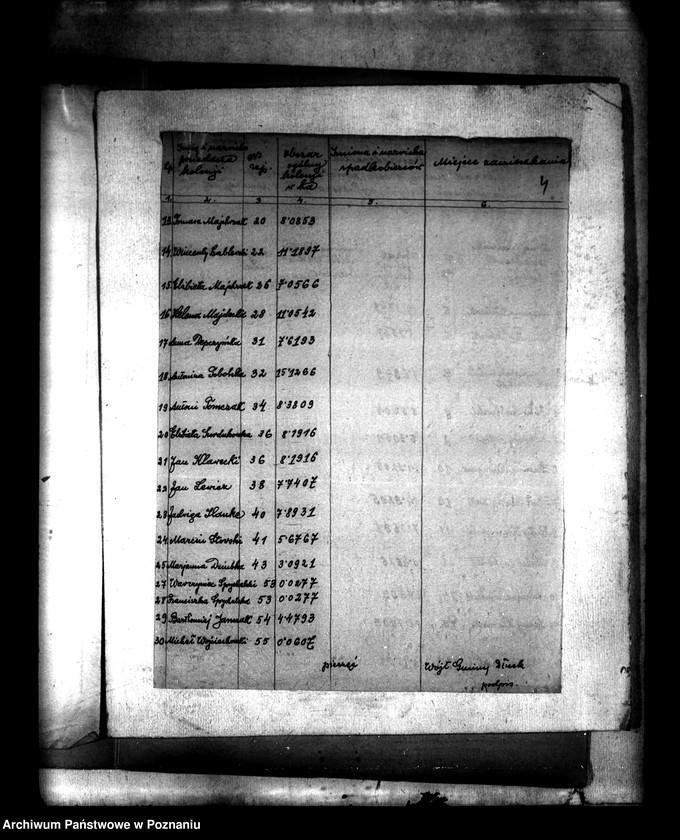 Lp. Imię i nazwisko posiadacza kolonji Nr rej. Obszar ogólny kolonji w ha Imiona i nazwiska spadkobierców Miejsce zamieszkania
4
1. 2. 3. 4. 5. 6.
13 Tomasz Majchrzak 20 8'0853
14 Wincenty 22 11'1897
15 Elżbieta Majchrzak 26 7'0566
16 Helena 28 11'0542
17 Anna 31 7'6193
18 Antonina 32 15'1266
19 Antoni Tomczak 34 8'3809
20 Elżbieta 36 8'1916
21 Jan Klarecki 36 8'1916
22 Jan Lewicz 38 7'7407
23 Jadwiga 40 7'8931
24 Marcin 41 5'6767
25 Marjanna Dziubka 43 3'0921
27 Wawrzyniec Spychalski 53 0'0277
28 Franciszka Spychalska 53 0'0277
29 Bartłomiej 54 4'4793
30 Michał Wojciechowski 55 0'0607
pieczęć Wójt Gminy
podpis.
Archiwum Państwowe w Poznaniu